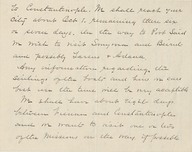 to Constantinople. We shall reach your
City about Oct 1, remaining there six
or seven days. On the way to Port Said
we wish to visit Smyrna and Beirut
and possibly Tarsus & Adana.
Any information regarding the
sailings of the boats and how we can
best use the time will be very acceptable
We shall have about eight days
between Smyrna and Constantinople
and we want to visit one or two
of the Missions on the way if possible